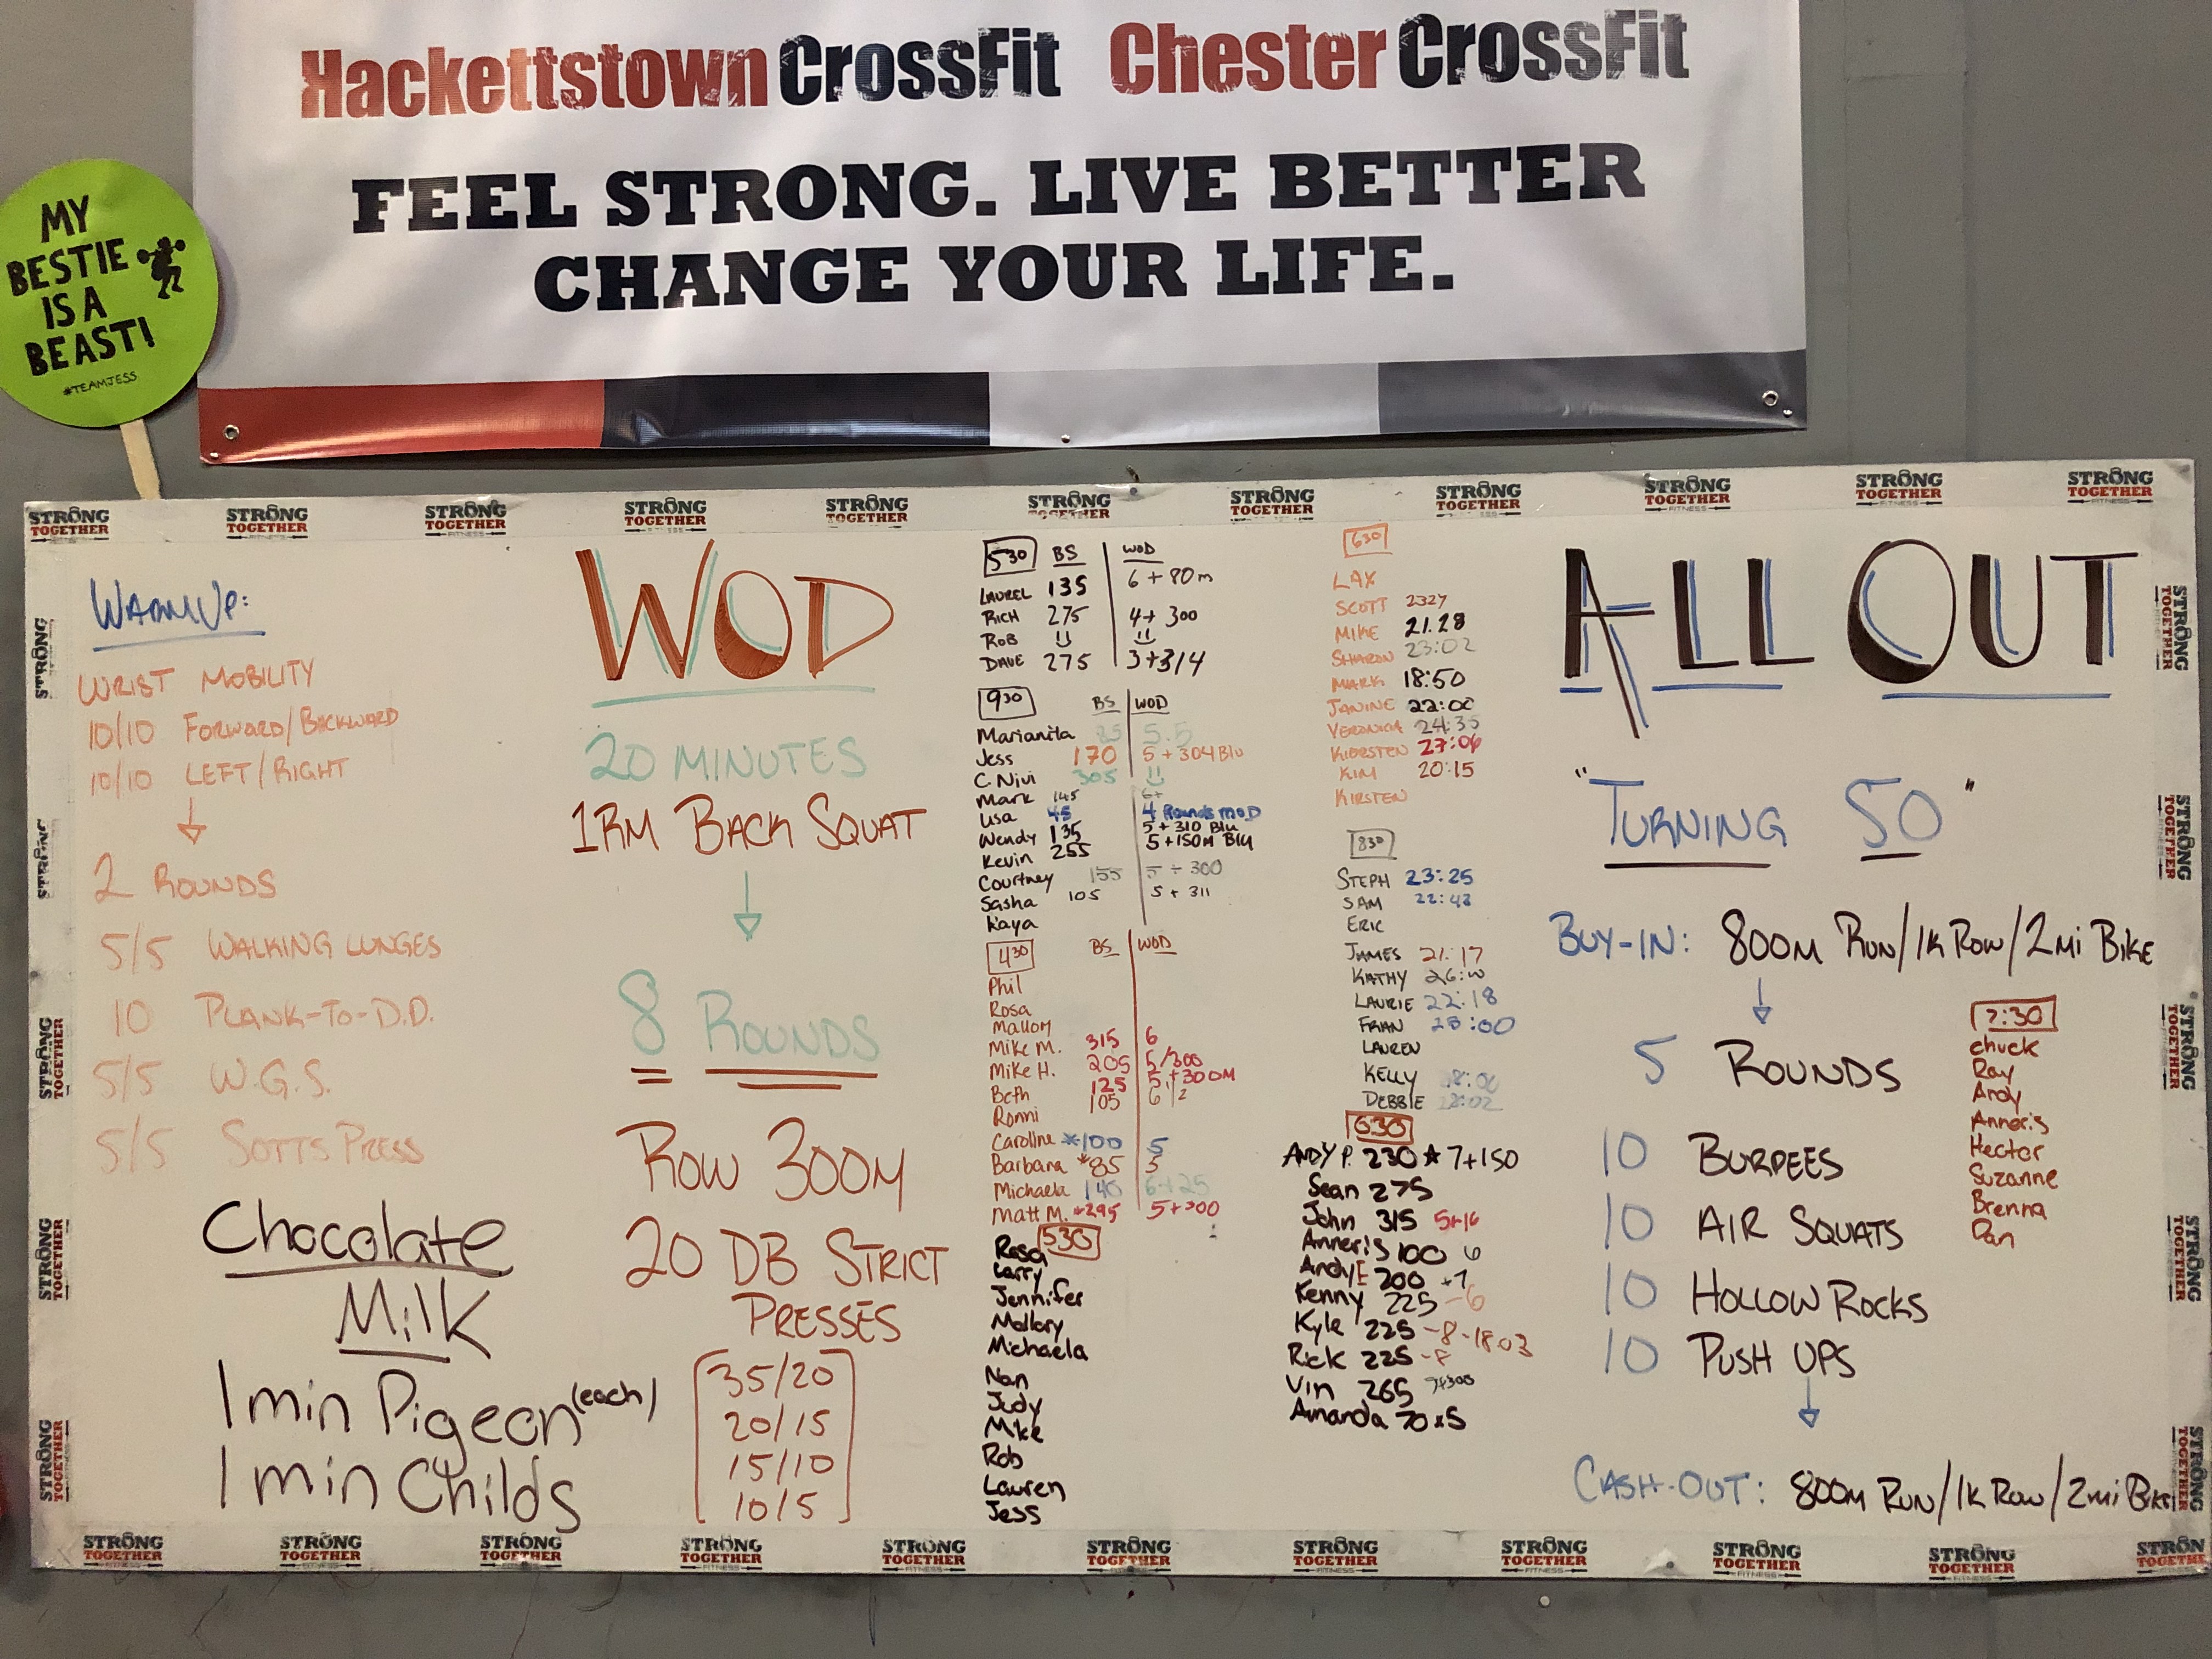 Hackettstown CrossFit Chester CrossFit
FEEL STRONG. LIVE BETTER
CHANGE YOUR LIFE.
MY
BESTIE
IS A
BEAST!
#TEAMJESS
STRONG TOGETHER FITNESS
WARM UP:
WRIST MOBILITY
10/10 FORWARD/BACKWARD
10/10 LEFT/RIGHT
2 ROUNDS
5/5 WALKING LUNGES
10 PLANK-TO-D.D.
5/5 W.G.S.
5/5 SOTTS PRESS
Chocolate
Milk
1 min Pigeon (each)
1 min Childs
WOD
20 MINUTES
1RM BACK SQUAT
8 ROUNDS
ROW 300M
20 DB STRICT
PRESSES
35/20
20/15
15/10
10/5
530 BS WOD
LAUREL 135 6+80m
RICH 275 4+300
ROB
DAVE 275 3+314
930 BS WOD
Marianita 5.5
Jess 170 5+304 Blu
C. Nivi 305
Mark 145 6+
Lisa 45 4 Rounds MOD
Wendy 135 5+310 Blu
Kevin 255 5+150M Blu
Courtney 155 5+300
Sasha 105 5+311
Kaya
430 BS WOD
Phil
Rosa
Mallory
Mike M. 315 6
Mike H. 205 5/300
Beth 125 5+300M
Ronni 105 6
Caroline *100 5
Barbana *85 5
Michaela 140 6+25
Matt M. *295 5+300
530
Rosa
Larry
Jennifer
Mallory
Michaela
Nan
Judy
Mike
Rob
Lauren
Jess
630
LAX
SCOTT 2327
MIKE 21.28
SHARON 23:02
MARK 18:50
JANINE 22:00
VERONICA 24:35
KIERSTEN 27:06
KIM 20:15
KIRSTEN
830
STEPH 23:25
SAM 22:42
ERIC
JAMES 21:17
KATHY
LAURIE 22:18
FRAN 28:00
LAUREN
KELLY
DEBBIE
630
ANDY P. 230 ★ 7+150
Sean 275
John 315 5+16
Anneris 100 6
Andy E 200 +7
Kenny 225 -6
Kyle 225 -8-18:03
Rick 225 -8
Vin 265 7+300
Amanda 70x5
ALL OUT
"TURNING 50"
BUY-IN: 800M RUN/1K ROW/2Mi BIKE
5 ROUNDS
10 BURPEES
10 AIR SQUATS
10 HOLLOW ROCKS
10 PUSH UPS
CASH-OUT: 800M RUN/1K ROW/2Mi BIKE
7:30
Chuck
Ray
Andy
Anneris
Hector
Suzanne
Brenna
Dan